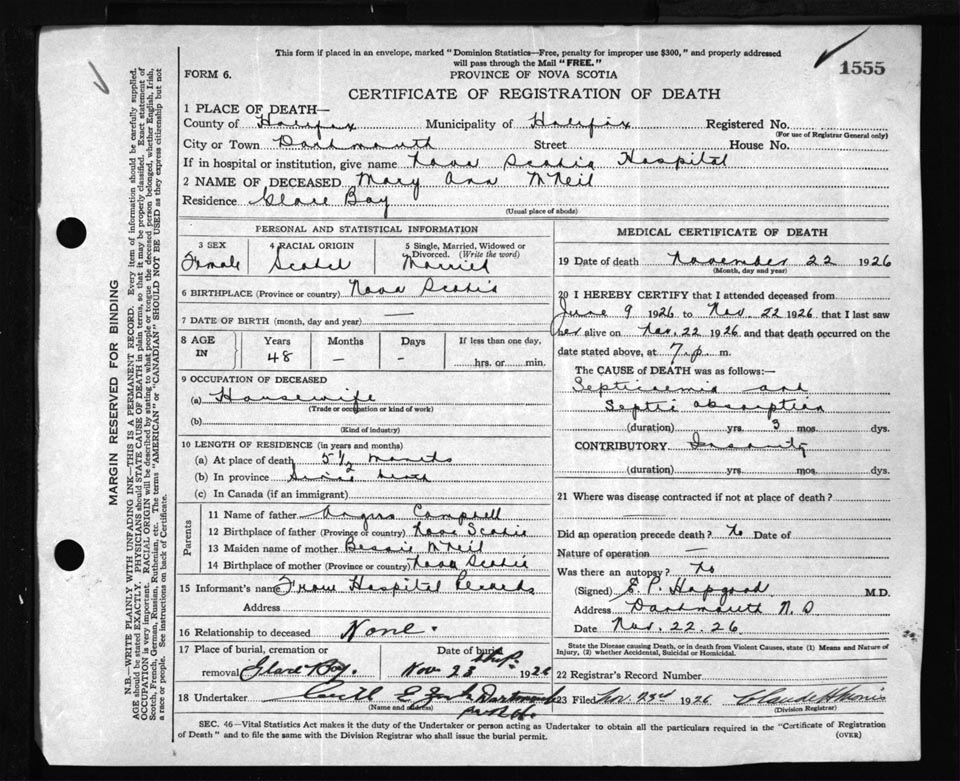 This form if placed in an envelope, marked "Dominion Statistics—Free, penalty for improper use $300," and properly addressed
will pass through the Mail "FREE."
FORM 6.
PROVINCE OF NOVA SCOTIA
1555
CERTIFICATE OF REGISTRATION OF DEATH
1 PLACE OF DEATH—
County of Halifax Municipality of Halifax Registered No.
(For use of Registrar General only)
City or Town Dartmouth Street House No.
If in hospital or institution, give name Nova Scotia Hospital
2 NAME OF DECEASED Mary Ann McNeil
Residence Glace Bay
(Usual place of abode)
PERSONAL AND STATISTICAL INFORMATION
3 SEX
Female
4 RACIAL ORIGIN
Scotch
5 Single, Married, Widowed or
Divorced. (Write the word)
Married
6 BIRTHPLACE (Province or country) Nova Scotia
7 DATE OF BIRTH (month, day and year) —
8 AGE
IN
Years
48
Months
—
Days
—
If less than one day,
hrs. or min.
9 OCCUPATION OF DECEASED
(a) Housewife
(Trade or occupation or kind of work)
(b)
(Kind of industry)
10 LENGTH OF RESIDENCE (in years and months)
(a) At place of death 5 1/2 months
(b) In province Since birth
(c) In Canada (if an immigrant)
Parents
11 Name of father Angus Campbell
12 Birthplace of father (Province or country) Nova Scotia
13 Maiden name of mother Bessie McNeil
14 Birthplace of mother (Province or country) Nova Scotia
15 Informant's name From Hospital Records
Address
16 Relationship to deceased None.
17 Place of burial, cremation or
removal Glace Bay.
Date of burial
Nov 23 1926
18 Undertaker Dartmouth
(Name and address)
MEDICAL CERTIFICATE OF DEATH
19 Date of death November 22 1926
(Month, day and year)
20 I HEREBY CERTIFY that I attended deceased from
June 9 1926 to Nov. 22 1926 that I last saw
her alive on Nov. 22 1926 and that death occurred on the
date stated above, at 7 p. m.
The CAUSE of DEATH was as follows:—
Septicaemia and
Septic absorption
(duration) yrs. 3 mos. dys.
CONTRIBUTORY Insanity
(duration) yrs. mos. dys.
21 Where was disease contracted if not at place of death?
Did an operation precede death? No Date of
Nature of operation —
Was there an autopsy? No
(Signed) E. P. Hapgood M.D.
Address Dartmouth N.S
Date Nov. 22. 26
State the Disease causing Death, or in death from Violent Causes, state (1) Means and Nature of
Injury, (2) whether Accidental, Suicidal or Homicidal.
22 Registrar's Record No.
23 Filed Nov 23rd 1926
(Division Registrar)
SEC. 46—Vital Statistics Act makes it the duty of the Undertaker or person acting as Undertaker to obtain all the particulars required in the "Certificate of Registration
of Death" and to file the same with the Division Registrar who shall issue the burial permit.
(OVER)
MARGIN RESERVED FOR BINDING
N.B.—WRITE PLAINLY WITH UNFADING INK—THIS IS A PERMANENT RECORD. Every item of information should be carefully supplied.
AGE should be stated EXACTLY. PHYSICIANS should STATE CAUSE OF DEATH in plain terms, so that it may be properly classified. Exact statement of
OCCUPATION is very important. RACIAL ORIGIN will be described by stating to what people or tongue the deceased person belonged, whether English, Irish,
Scotch, French, German, Russian, Ruthenian, etc. The terms "AMERICAN" or "CANADIAN" SHOULD NOT BE USED as they express citizenship but not
a race or people. See instructions on back of Certificate.